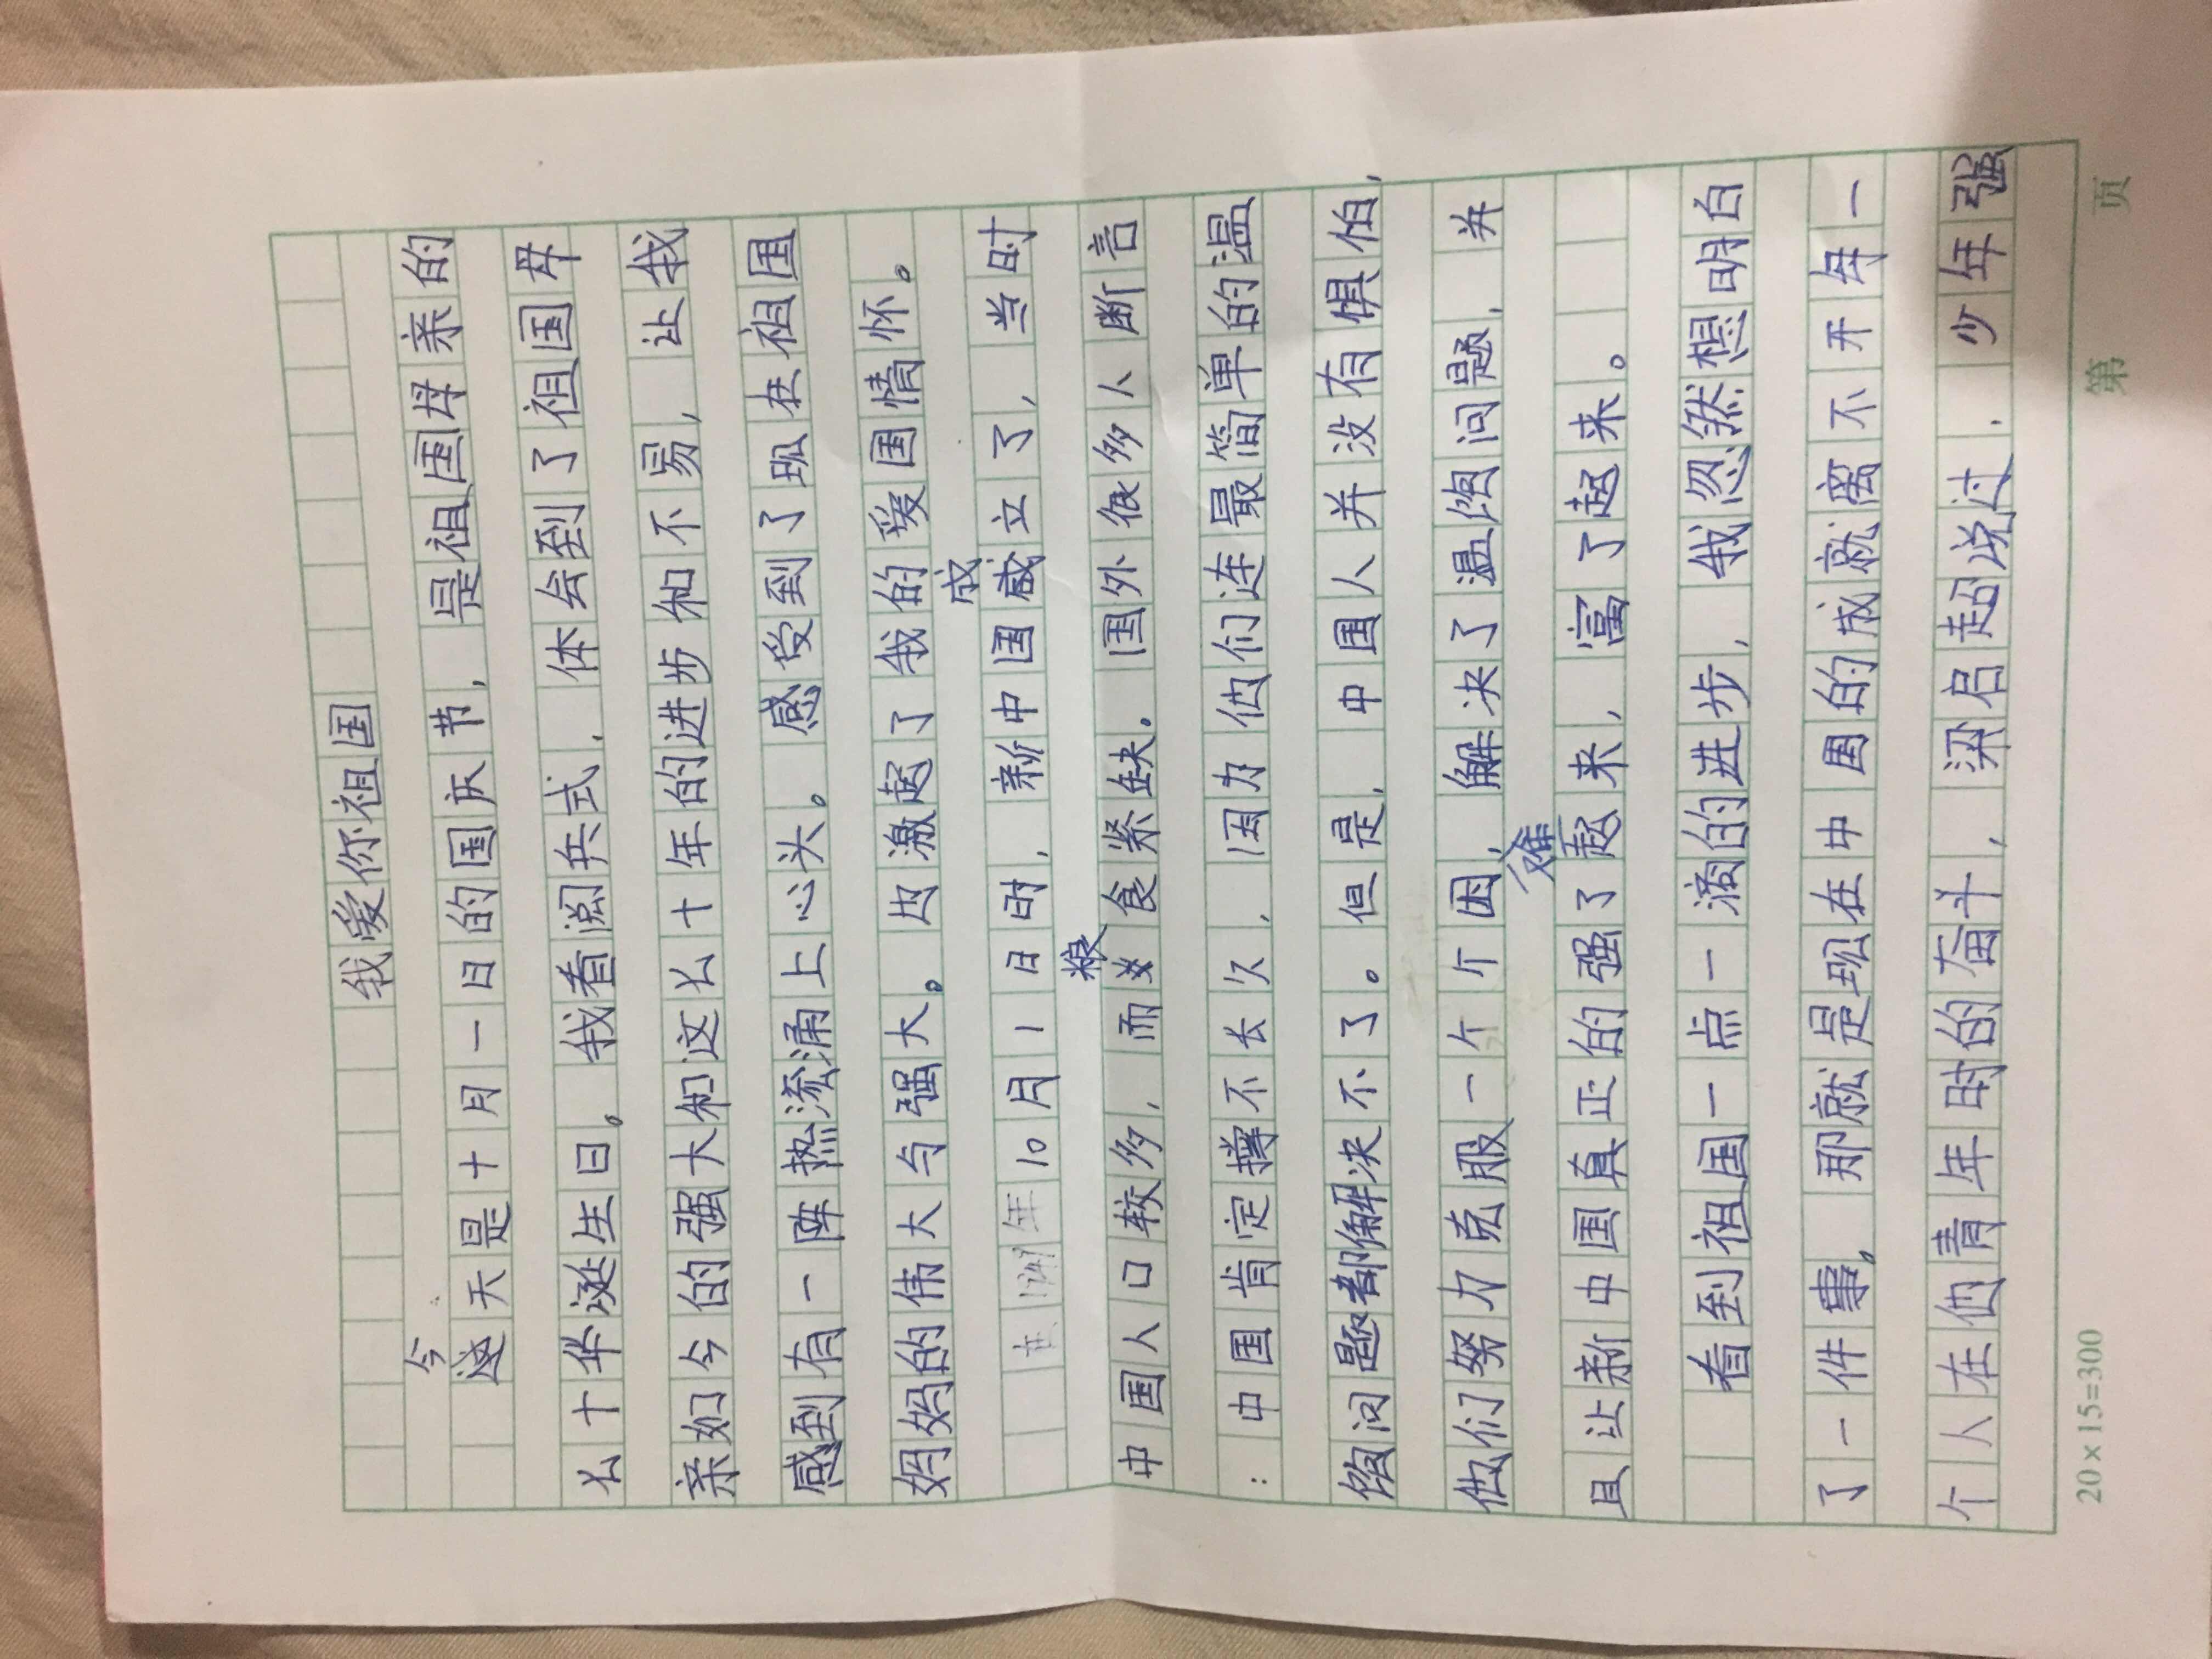 我爱你祖国
今天是十月一日的国庆节，是祖国母亲的
七十华诞生日。我看阅兵式，体会到了祖国母
亲如今的强大和这七十年的进步和不易，让我
感到有一阵热流涌上心头。感受到了现在祖国
妈妈的伟大与强大。也激起了我的爱国情怀。
在1949年10月1日时，新中国成立了，当时
中国人口较多，而粮食紧缺。国外很多人断言
：中国肯定撑不长久，因为他们连最简单的温
饱问题都解决不了。但是，中国人并没有惧怕，
他们努力克服一个个困难，解决了温饱问题，并
且让新中国真正的强了起来，富了起来。
看到祖国一点一滴的进步，我忽然想明白
了一件事。那就是现在中国的成就离不开每一
个人在他青年时的奋斗，梁启超说过，少年强
20×15=300
第 页